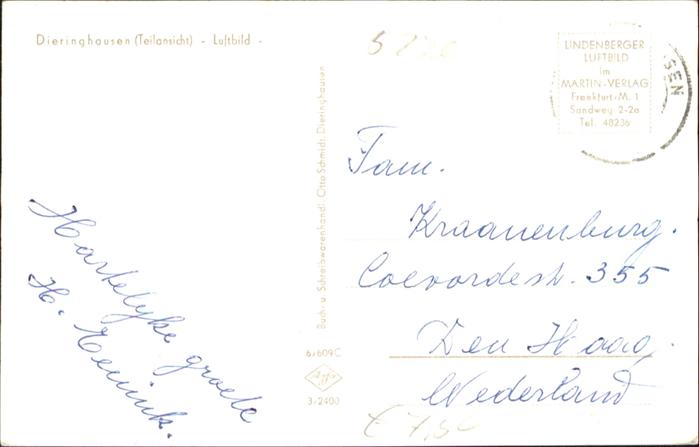 Dieringhausen (Teilansicht) - Luftbild -
LINDENBERGER
LUFTBILD
im
MARTIN-VERLAG
Frankfurt-M. 1
Sandweg 2-2a
Tel. 48236
SEN
Buch- u. Schreibwarenhandl. Otto Schmidt, Dieringhausen
Fam.
Kraanenburg.
Coevordestr. 355
Den Haag.
Nederland
Hartelijke groete
H.
6/609C
Agfa
3/2400
€ 7,50